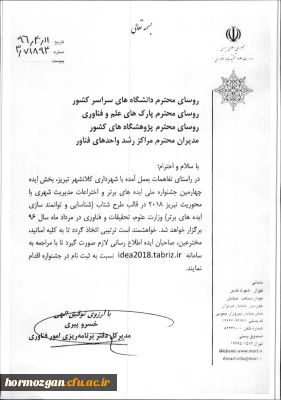 بسمه تعالی
تاریخ ۹۶,۴,۱۱
شماره ۳/۷۱۸۹۳
پیوست
جمهوری اسلامی ایران
وزارت علوم، تحقیقات و فناوری
روسای محترم دانشگاه های سراسر کشور
روسای محترم پارک های علم و فناوری
روسای محترم پژوهشگاه های کشور
مدیران محترم مراکز رشد واحدهای فناور
با سلام و احترام؛
در راستای تفاهمات بعمل آمده با شهرداری کلانشهر تبریز، بخش ایده
چهارمین جشنواره ملی ایده های برتر و اختراعات مدیریت شهری با
محوریت تبریز ۲۰۱۸ در قالب طرح شتاب (شناسایی و توانمند سازی
ایده های برتر) وزارت علوم، تحقیقات و فناوری در مرداد ماه سال ۹۶
برگزار خواهد شد. خواهشمند است ترتیبی اتخاذ گردد تا به کلیه اساتید،
مخترعین، صاحبان ایده اطلاع رسانی لازم صورت گیرد تا با مراجعه به
سامانه idea2018.tabriz.ir نسبت به ثبت نام در جشنواره اقدام
نمایند.
با آرزوی توفیق الهی
خسرو پیری
مدیرکل دفتر برنامه‌ریزی امور فناوری
hormozgan.cfu.ac.ir